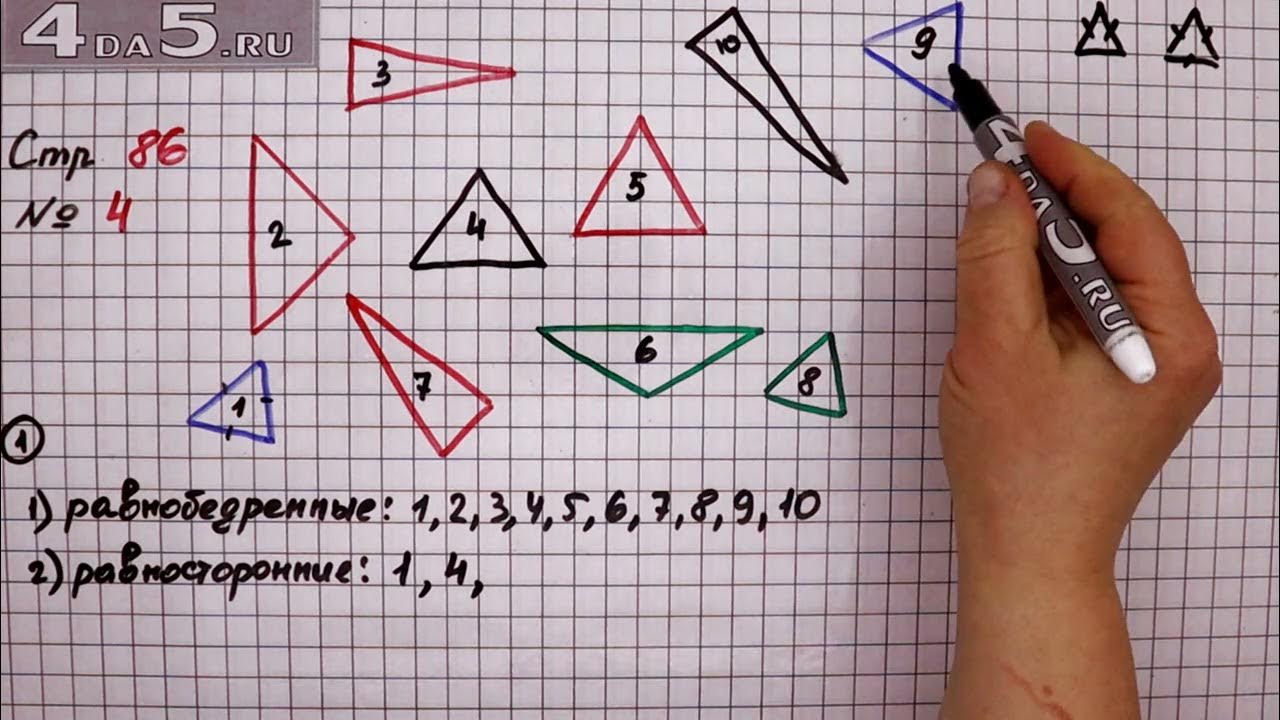 4DA5.RU
3
10
9
Стр 86
№ 4
2
4
5
4DA5.RU
1
7
6
8
1
1) равнобедренные: 1, 2, 3, 4, 5, 6, 7, 8, 9, 10
2) равносторонние: 1, 4,